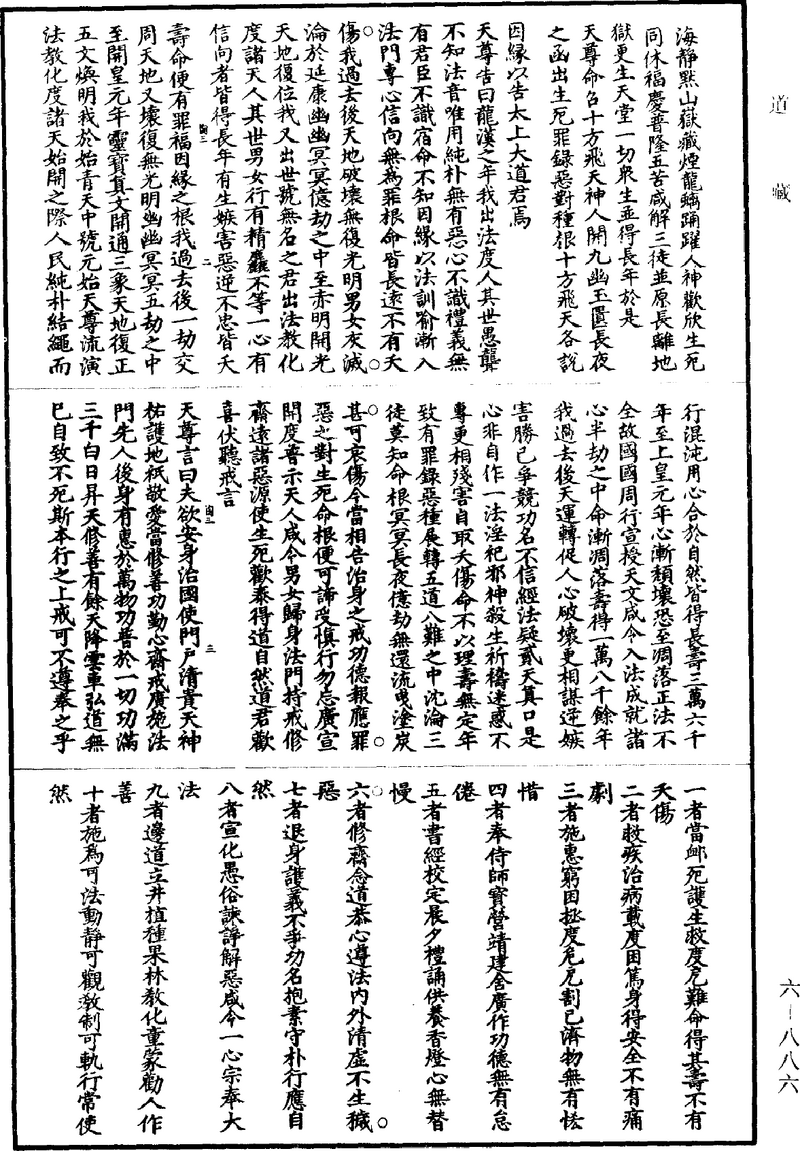 道藏
海靜默山嶽藏煙龍螭踊躍人神歡欣生死
同休福慶普隆五苦咸解三徒並原長離地
獄更生天堂一切衆生並得長年於是
天尊命召十方飛天神人開九幽玉匱長夜
之函出生死罪錄惡對種根十方飛天各說
因緣以告太上大道君焉
天尊告曰龍漢之年我出法度人其世愚聾
不知法音唯用純朴無有惡心不識禮義無
有君臣不識宿命不知因緣以法訓喻漸入
法門專心信向無爲罪根命皆長遠不有夭
傷我過去後天地破壞無復光明男女灰滅
淪於延康幽幽冥冥億劫之中至赤明開光
天地復位我又出世號無名之君出法教化
度諸天人其世男女行有精麤不等一心有
信向者皆得長年有生嫉害惡逆不忠皆夭
壽命便有罪福因緣之根我過去後一劫交
周天地又壞復無光明幽幽冥冥五劫之中
至開皇元年靈寶真文開通三象天地復正
五文煥明我於始青天中號元始天尊流演
法教化度諸天始開之際人民純朴結繩而
行混沌用心合於自然皆得長壽三萬六千
年至上皇元年心漸頹壞恐至凋落正法不
全故國國周行宣授天文咸令入法成就諸
心半劫之中命漸凋落壽得一萬八千餘年
我過去後天運轉促人心破壞更相謀逆嫉
害勝己爭競功名不信經法疑貳天真口是
心非自作一法淫祀邪神殺生祈禱迷惑不
專更相殘害自取夭傷命不以理壽無定年
致有罪錄惡種展轉五道八難之中沈淪三
徒莫知命根冥冥長夜億劫無還流曳塗炭
甚可哀傷今當相告治身之戒功德報應罪
惡之對生死命根便可諦受慎行勿忘廣宣
開度普示天人咸令男女歸身法門持戒修
齋遠諸惡源使生死歡泰得道自然道君歡
喜伏聽戒言
天尊言曰夫欲安身治國使門戶清貴天神
祐護地祇敬愛當修善功勤心齋戒廣施法
門先人後身有惠於萬物功普於一切功滿
三千白日昇天修善有餘天降雲車弘道無
已自致不死斯本行之上戒可不遵奉之乎
一者當卹死護生救度厄難命得其壽不有
夭傷
二者救疾治病載度困篤身得安全不有痛
劇
三者施惠窮困拯度危厄割己濟物無有恡
惜
四者奉侍師寶營靖建舍廣作功德無有怠
倦
五者書經校定晨夕禮誦供養香燈心無替
慢
六者修齋念道恭心遵法內外清虛不生穢
惡
七者退身護義不爭功名抱素守朴行應自
然
八者宣化愚俗諫諍解惡咸令一心宗奉大
法
九者邊道立井植種果林教化童蒙勸人作
善
十者施爲可法動靜可觀教制可軌行常使
然
六－八八六